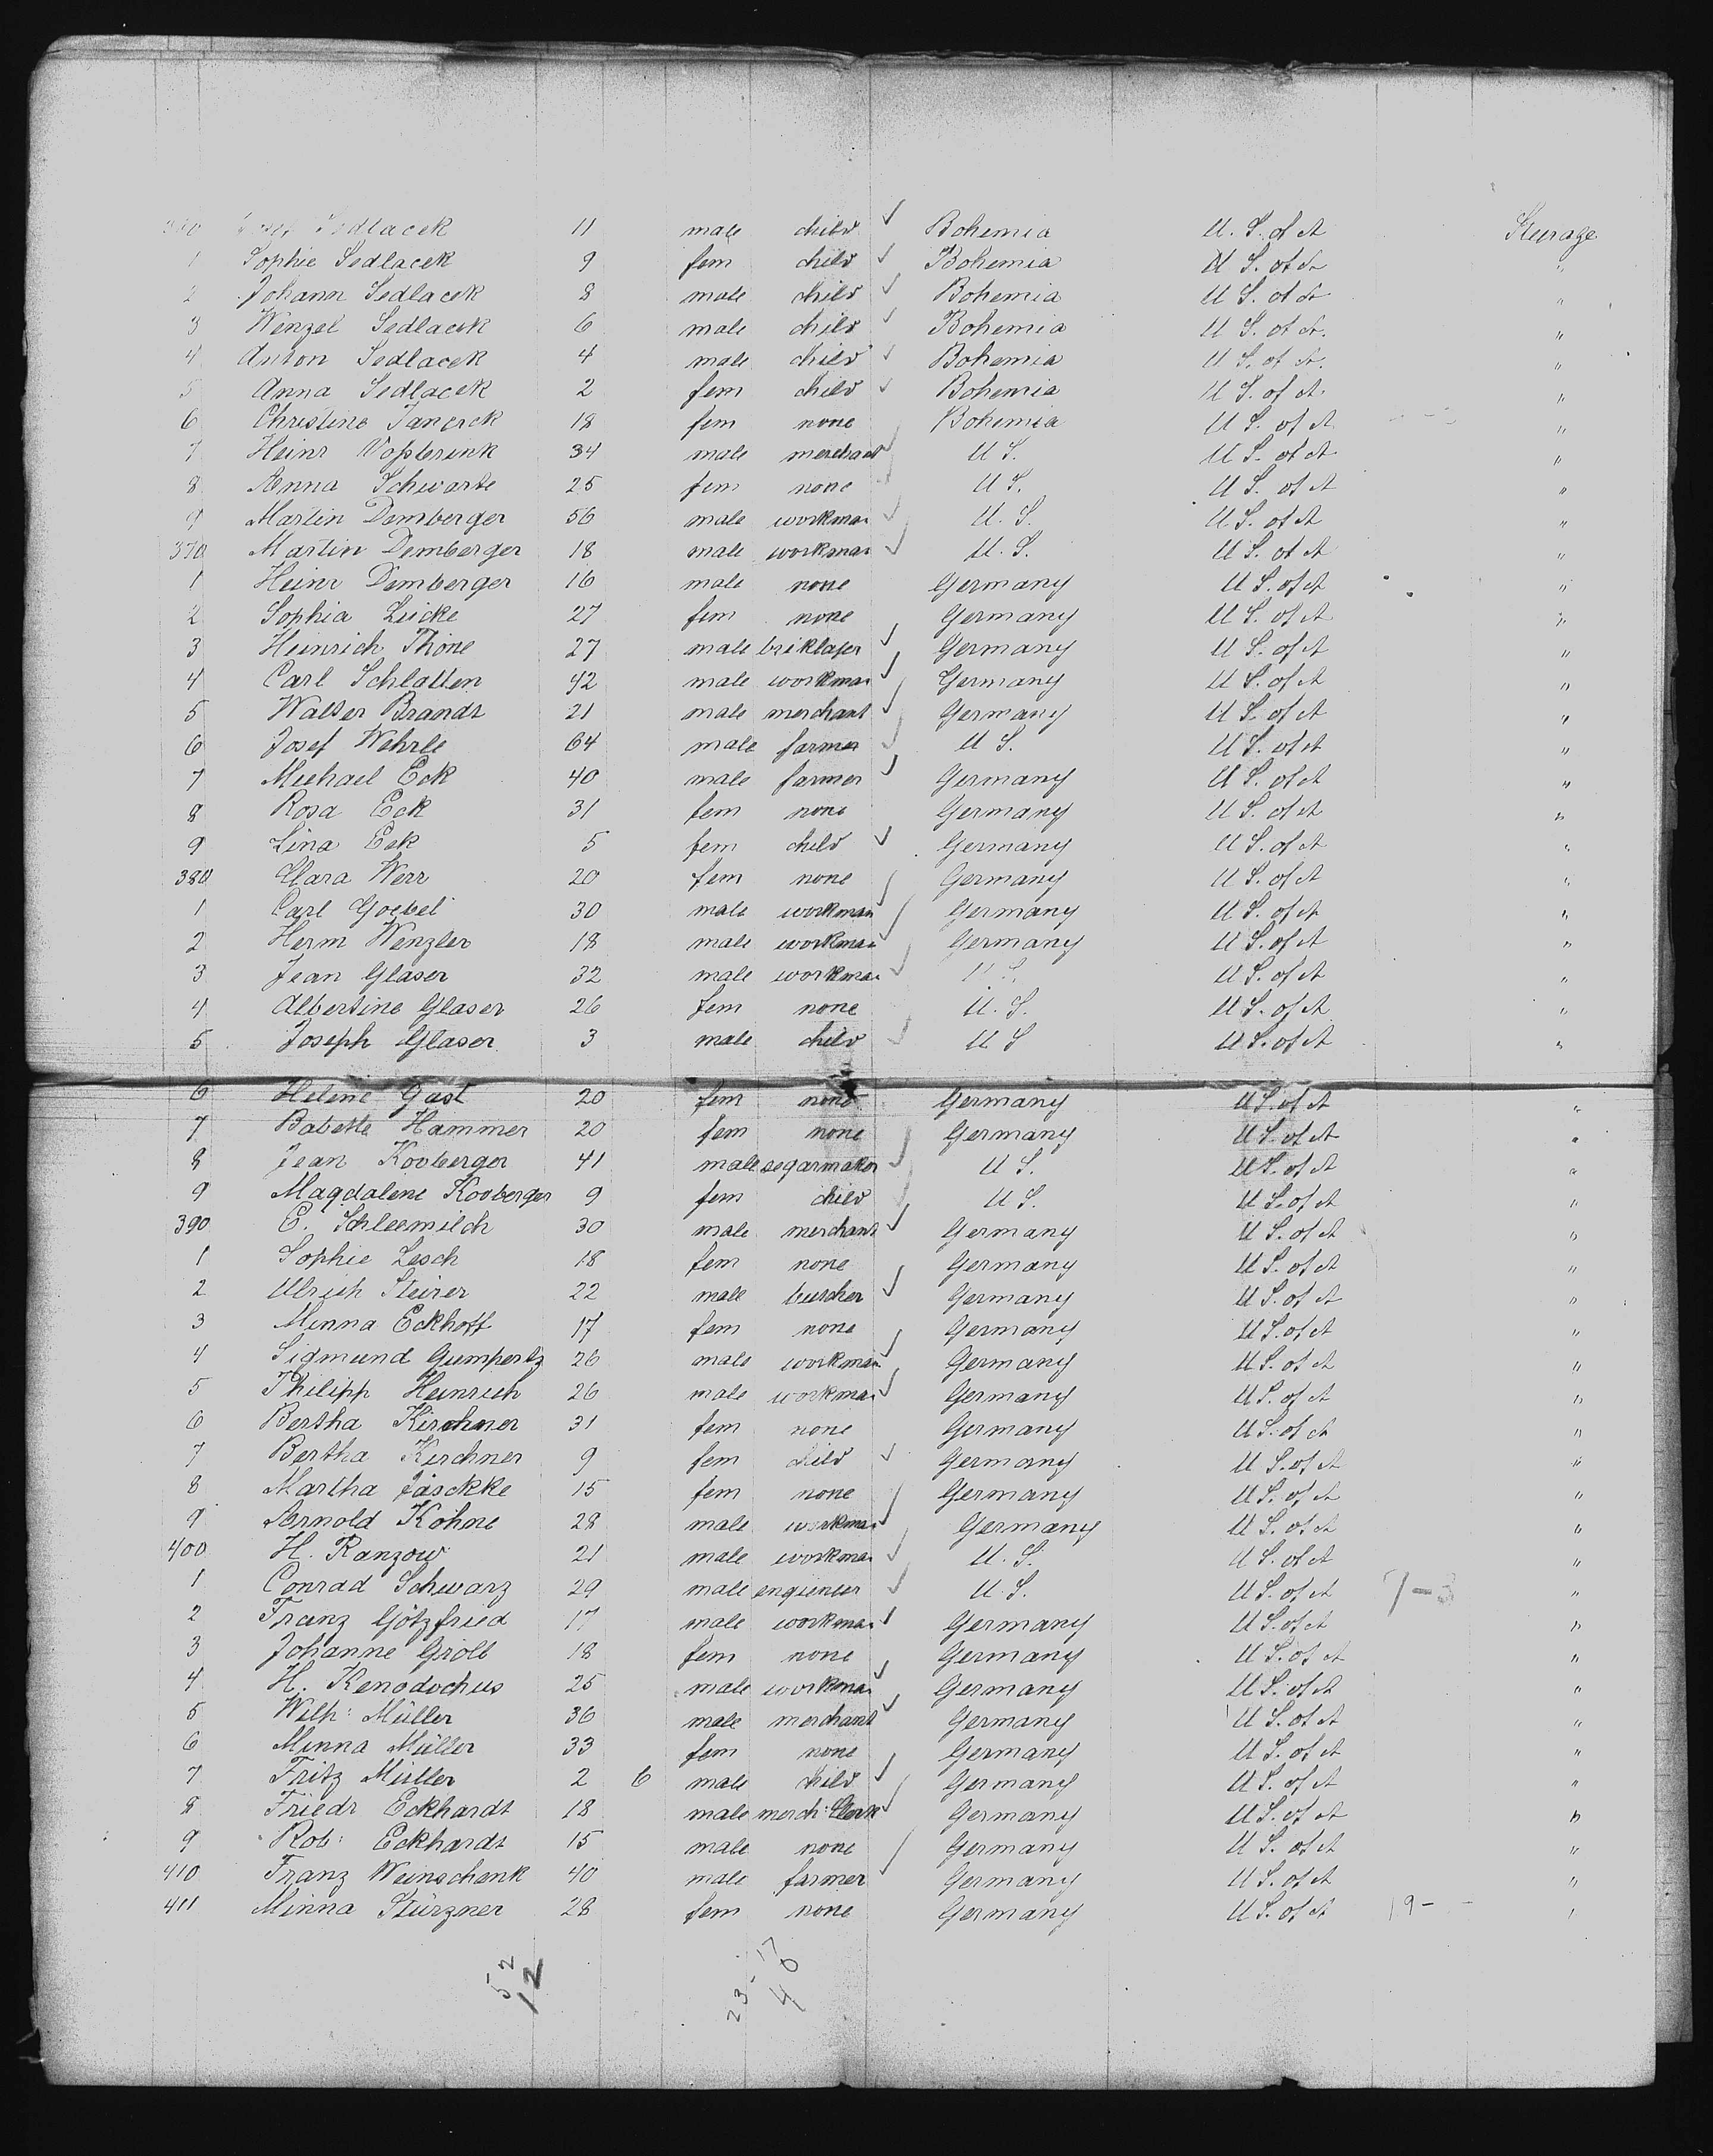 Sedlacek 11 male child ✓ Bohemia U. S. of A Steurage
1 Sophie Sedlacek 9 fem child ✓ Bohemia U S. of A "
2 Johann Sedlacek 8 male child ✓ Bohemia U S. of A "
3 Wenzel Sedlacek 6 male child ✓ Bohemia U S. of A. "
4 Anton Sedlacek 4 male child ✓ Bohemia U S. of A. "
5 Anna Sedlacek 2 fem child ✓ Bohemia U S. of A. "
6 Christine 18 fem none Bohemia U S. of A "
7 Heinr Voßbrink 34 male merchant ✓ U S. U S. of A "
8 Anna Schwarte 25 fem none U S. U S. of A "
9 Martin Demberger 56 male workman ✓ U. S. U. S. of A "
370 Martin Demberger 18 male workman ✓ U. S. U S. of A "
1 Heinr Demberger 16 male none Germany U S. of A "
2 Sophia Lücke 27 fem none Germany U S. of A "
3 Heinrich Thöne 27 male briklayer ✓ Germany U S. of A "
4 Carl Schlatten 42 male workman ✓ Germany U S. of A "
5 Walter Brandt 21 male merchant ✓ Germany U S. of A "
6 Josef Wehrle 64 male farmer ✓ U S. U S. of A "
7 Michael Eck 40 male farmer ✓ Germany U S. of A "
8 Rosa Eck 31 fem none Germany U S. of A "
9 Lina Eck 5 fem child ✓ Germany U S. of A "
380 Clara Werr 20 fem none Germany U S. of A "
1 Carl Goebel 30 male workman ✓ Germany U S. of A "
2 Herm Wenzler 18 male workman ✓ Germany U S. of A "
3 Jean Glaser 32 male workman ✓ U S. U S. of A "
4 Albertine Glaser 26 fem none U. S. U S. of A "
5 Joseph Glaser 3 male child ✓ U S U S. of A "
6 Helene Gast 20 fem none Germany U S. of A "
7 Babette Hammer 20 fem none Germany U S. of A "
8 Jean Kooberger 41 male segarmaker ✓ U S. U S. of A "
9 Magdalene Kooberger 9 fem child ✓ U S. U S. of A "
390 E. Schleemilch 30 male merchant ✓ Germany U S. of A "
1 Sophie Lesch 18 fem none Germany U S. of A "
2 Ulrich Steirer 22 male butcher ✓ Germany U S. of A "
3 Minna Eckhoff 17 fem none Germany U S. of A "
4 Sigmund Gumpertz 26 male workman ✓ Germany U S. of A "
5 Philipp Heinrich 26 male workman ✓ Germany U S. of A "
6 Bertha Kirchner 31 fem none Germany U S. of A "
7 Bertha Kirchner 9 fem child ✓ Germany U S. of A "
8 Martha Jäsckke 15 fem none Germany U S. of A "
9 Arnold Kohne 28 male workman ✓ Germany U S. of A "
400 H. Ranzow 21 male workman ✓ U. S. U S. of A "
1 Conrad Schwarz 29 male engieneer ✓ U. S. U S. of A 7-3 "
2 Franz Götzfried 17 male workman ✓ Germany U S. of A "
3 Johanne Groll 18 fem none Germany U S. of A "
4 H. Kenodochus 25 male workman ✓ Germany U S. of A "
5 Wilh: Müller 36 male merchant ✓ Germany U S. of A "
6 Minna Müller 33 fem none Germany U S. of A "
7 Fritz Müller 2 6 male child ✓ Germany U S. of A "
8 Friedr Eckhardt 18 male merch: Clerk ✓ Germany U S. of A "
9 Rob: Eckhardt 15 male none Germany U S. of A "
410 Franz Weinschenk 40 male farmer ✓ Germany U S. of A "
411 Minna Stürzner 28 fem none Germany U S. of A 19- "
52
12
23-17
40